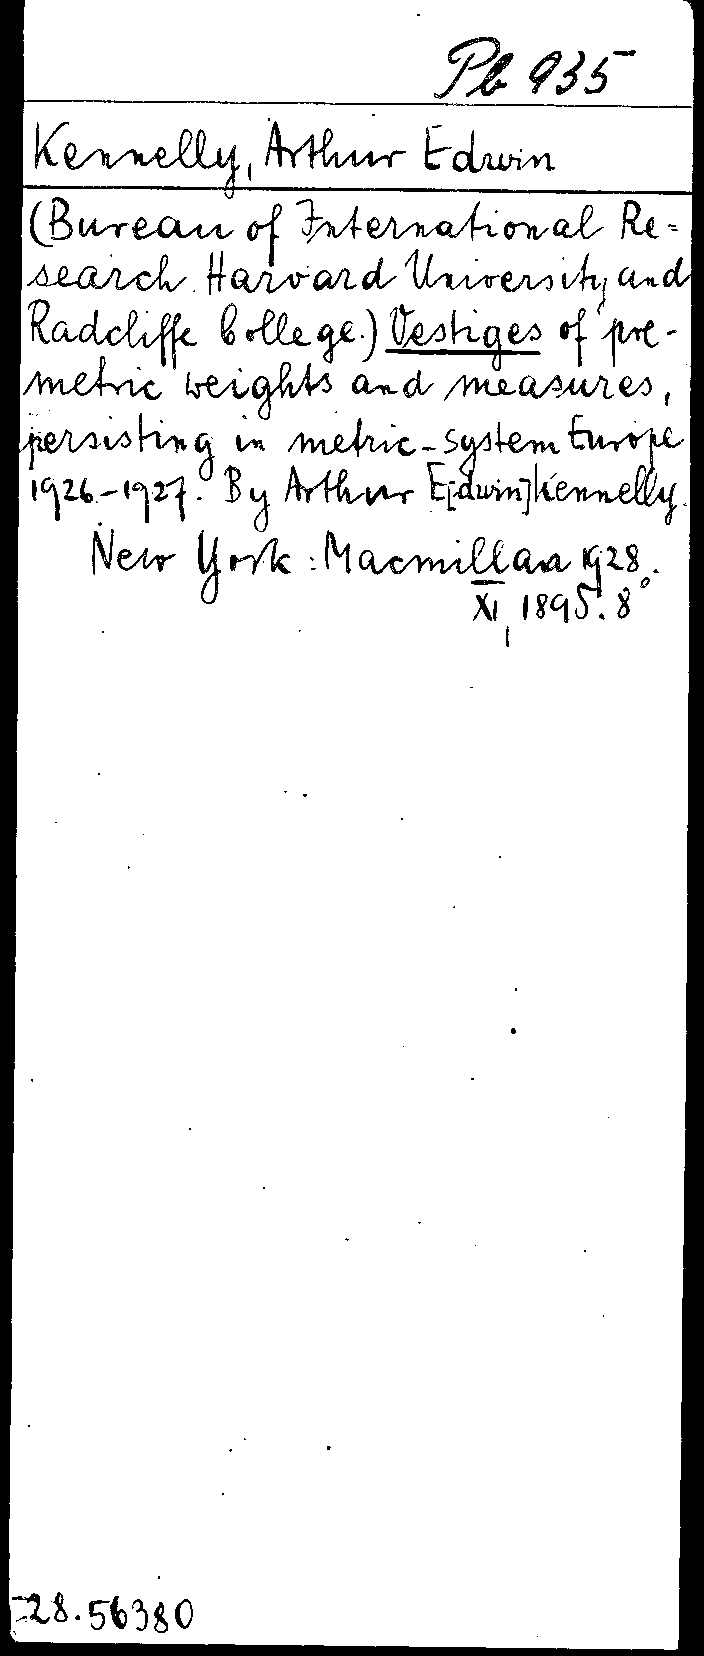 Pb 935
Kennelly, Arthur Edwin
(Bureau of International Re=
search Harvard University and
Radcliffe College.) Vestiges of pre-
metric weights and measures,
persisting in metric-system Europe
1926-1927. By Arthur E[dwin] Kennelly.
New York: Macmillan 1928.
XI, 189 S. 8°
28.56380